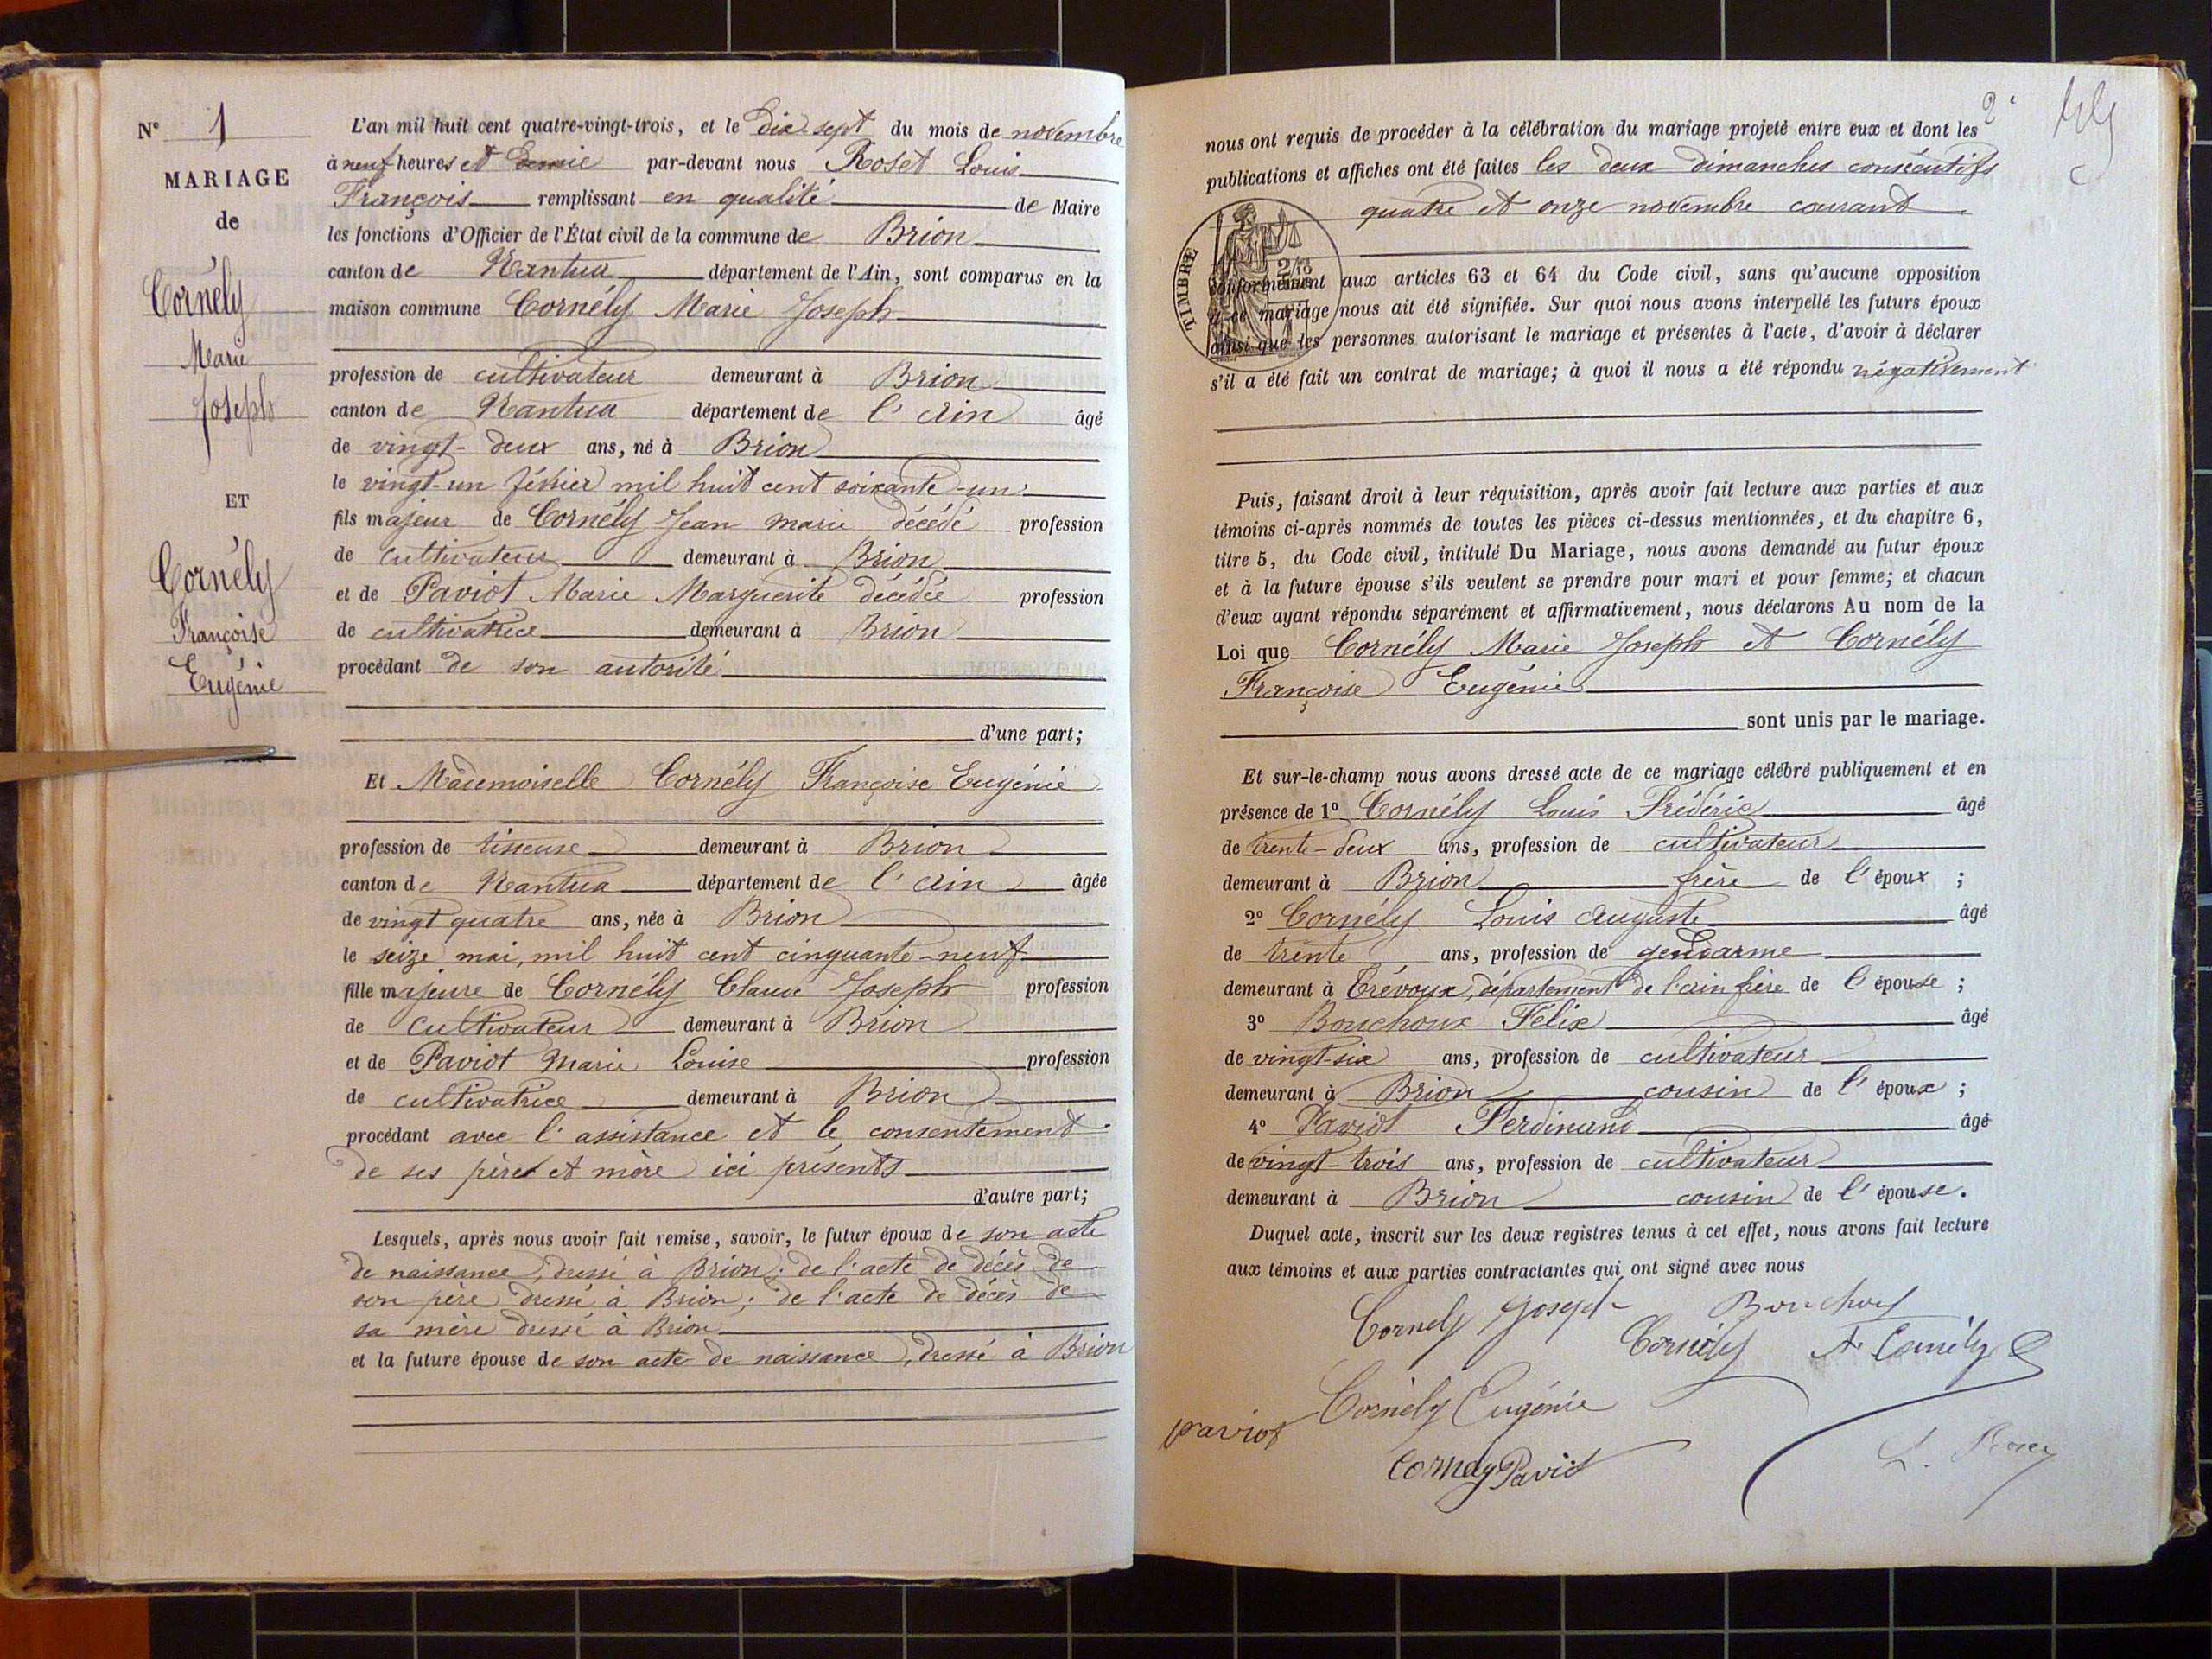 N° 1
MARIAGE
de
Cornély
Marie
Joseph
ET
Cornély
Françoise
Eugénie
L'an mil huit cent quatre-vingt-trois, et le dix-sept du mois de novembre
à neuf heures et demie par-devant nous Roset Louis
François remplissant en qualité de Maire
les fonctions d'Officier de l'État civil de la commune de Brion
canton de Nantua département de l'Ain, sont comparus en la
maison commune Cornély Marie Joseph
profession de cultivateur demeurant à Brion
canton de Nantua département de l'Ain âgé
de vingt-deux ans, né à Brion
le vingt-un février mil huit cent soixante-un
fils majeur de Cornély Jean Marie décédé profession
de cultivateur demeurant à Brion
et de Paviot Marie Marguerite décédée profession
de cultivatrice demeurant à Brion
procédant de son autorité
d'une part;
Et Mademoiselle Cornély Françoise Eugénie
profession de tisseuse demeurant à Brion
canton de Nantua département de l'Ain âgée
de vingt quatre ans, née à Brion
le seize mai, mil huit cent cinquante-neuf
fille majeure de Cornély Claude Joseph profession
de cultivateur demeurant à Brion
et de Paviot Marie Louise profession
de cultivatrice demeurant à Brion
procédant avec l'assistance et le consentement
de ses père et mère ici présents
d'autre part;
Lesquels, après nous avoir fait remise, savoir, le futur époux de son acte
de naissance, dressé à Brion; de l'acte de décès de
son père dressé à Brion; de l'acte de décès de
sa mère dressé à Brion
et la future épouse de son acte de naissance, dressé à Brion
2
nous ont requis de procéder à la célébration du mariage projeté entre eux et dont les
publications et affiches ont été faites les deux dimanches consécutifs
quatre et onze novembre courant
TIMBRE
conformément aux articles 63 et 64 du Code civil, sans qu'aucune opposition
à ce mariage nous ait été signifiée. Sur quoi nous avons interpellé les futurs époux
ainsi que les personnes autorisant le mariage et présentes à l'acte, d'avoir à déclarer
s'il a été fait un contrat de mariage; à quoi il nous a été répondu négativement
Puis, faisant droit à leur réquisition, après avoir fait lecture aux parties et aux
témoins ci-après nommés de toutes les pièces ci-dessus mentionnées, et du chapitre 6,
titre 5, du Code civil, intitulé Du Mariage, nous avons demandé au futur époux
et à la future épouse s'ils veulent se prendre pour mari et pour femme; et chacun
d'eux ayant répondu séparément et affirmativement, nous déclarons Au nom de la
Loi que Cornély Marie Joseph et Cornély
Françoise Eugénie
sont unis par le mariage.
Et sur-le-champ nous avons dressé acte de ce mariage célébré publiquement et en
présence de 1° Cornély Louis Frédéric âgé
de trente-deux ans, profession de cultivateur
demeurant à Brion frère de l'époux ;
2° Cornély Louis Auguste âgé
de trente ans, profession de gendarme
demeurant à Trévoux, département de l'Ain frère de l'épouse ;
3° Bouchoux Félix âgé
de vingt-six ans, profession de cultivateur
demeurant à Brion cousin de l'époux ;
4° Paviot Ferdinand âgé
de vingt-trois ans, profession de cultivateur
demeurant à Brion cousin de l'épouse.
Duquel acte, inscrit sur les deux registres tenus à cet effet, nous avons fait lecture
aux témoins et aux parties contractantes qui ont signé avec nous
Cornely Joseph Bouchoux
Cornély Cornély
Cornély Eugénie
paviot
Cornély Paviot